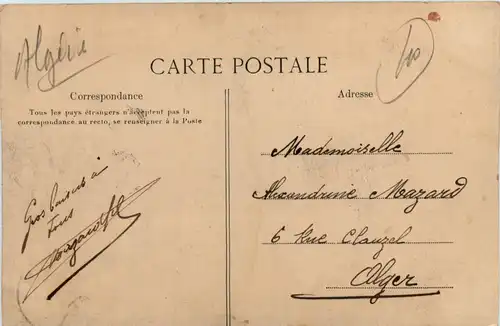 Algérie
CARTE POSTALE
Correspondance
Adresse
Tous les pays étrangers n'acceptent pas la
correspondance au recto, se renseigner à la Poste
Gros baisers à
tous
Mademoiselle
Alexandrine Mazard
6 Rue Clauzel
Alger